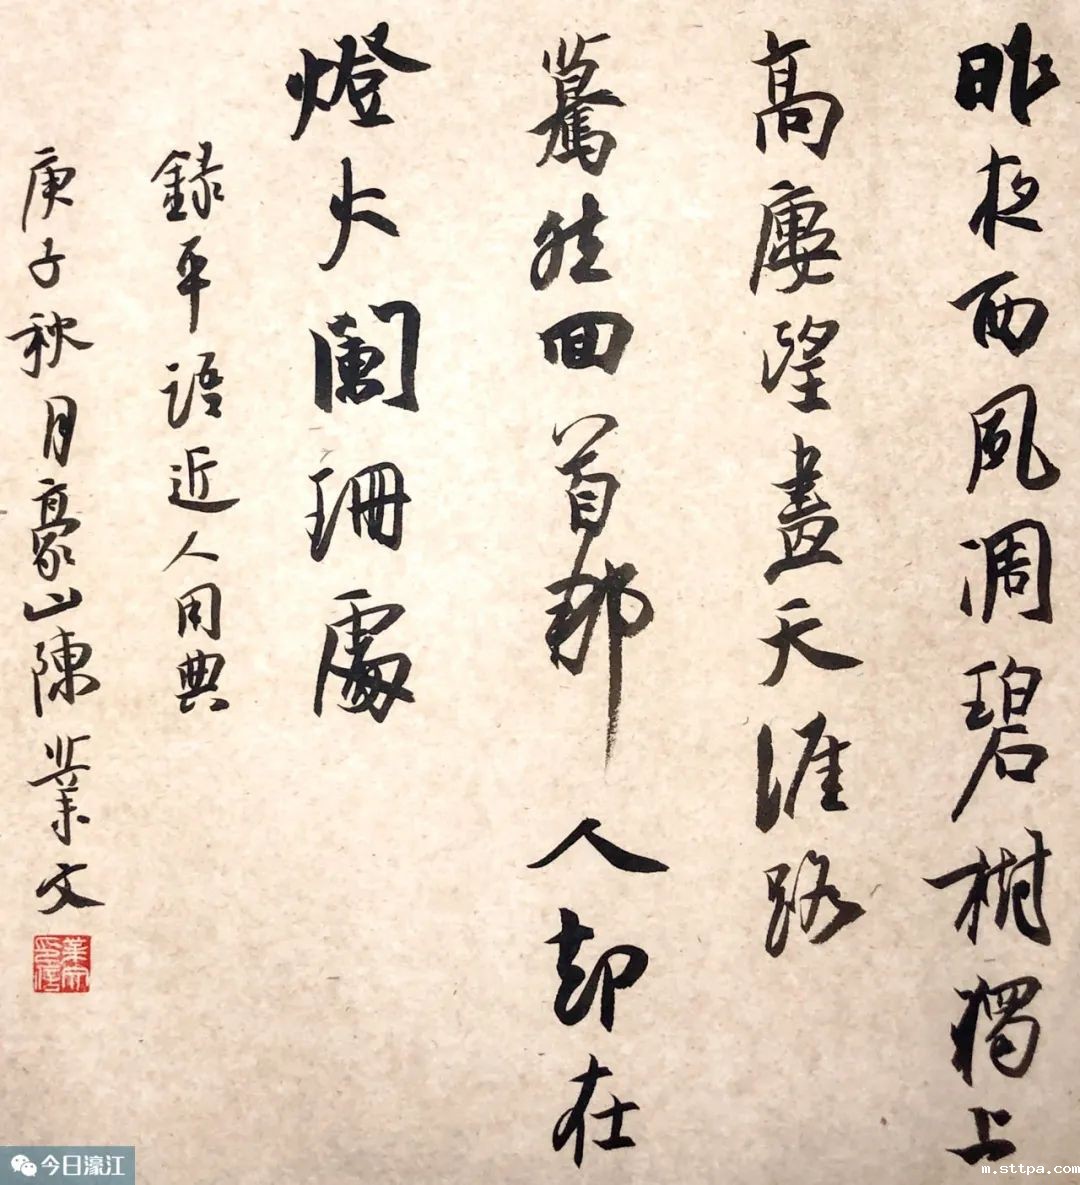 昨夜西風凋碧樹獨上
高樓望盡天涯路
驀然回首那人却在
燈火闌珊處
録平語近人用典
庚子秋月豪山陳業文
業文印信
今日濠江
m.sttpa.com